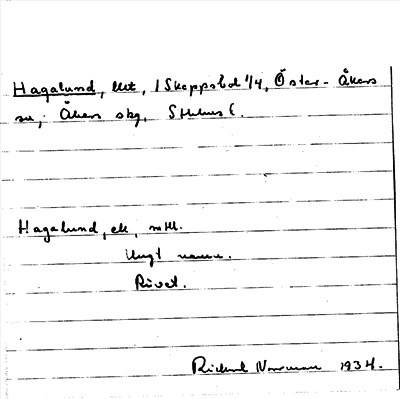 Hagalund, lht, 1 Skeppsbol 1/4, Öster-Åkers
sn, Åkers skg, Sthlms l.
Hagalund, ek, mtl.
Ungt namn.
Rivet.
Rickard Norrman 1934.